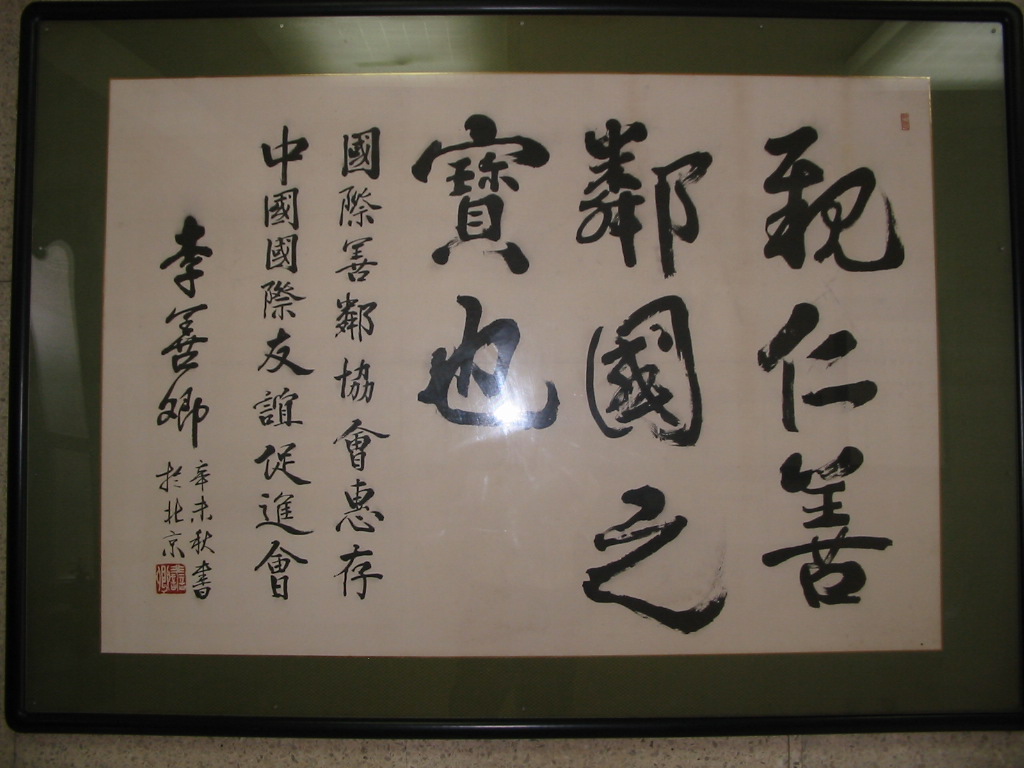 親仁善
鄰國之
寶也
國際善鄰協會惠存
中國國際友誼促進會
李善卿
辛未秋書
於北京